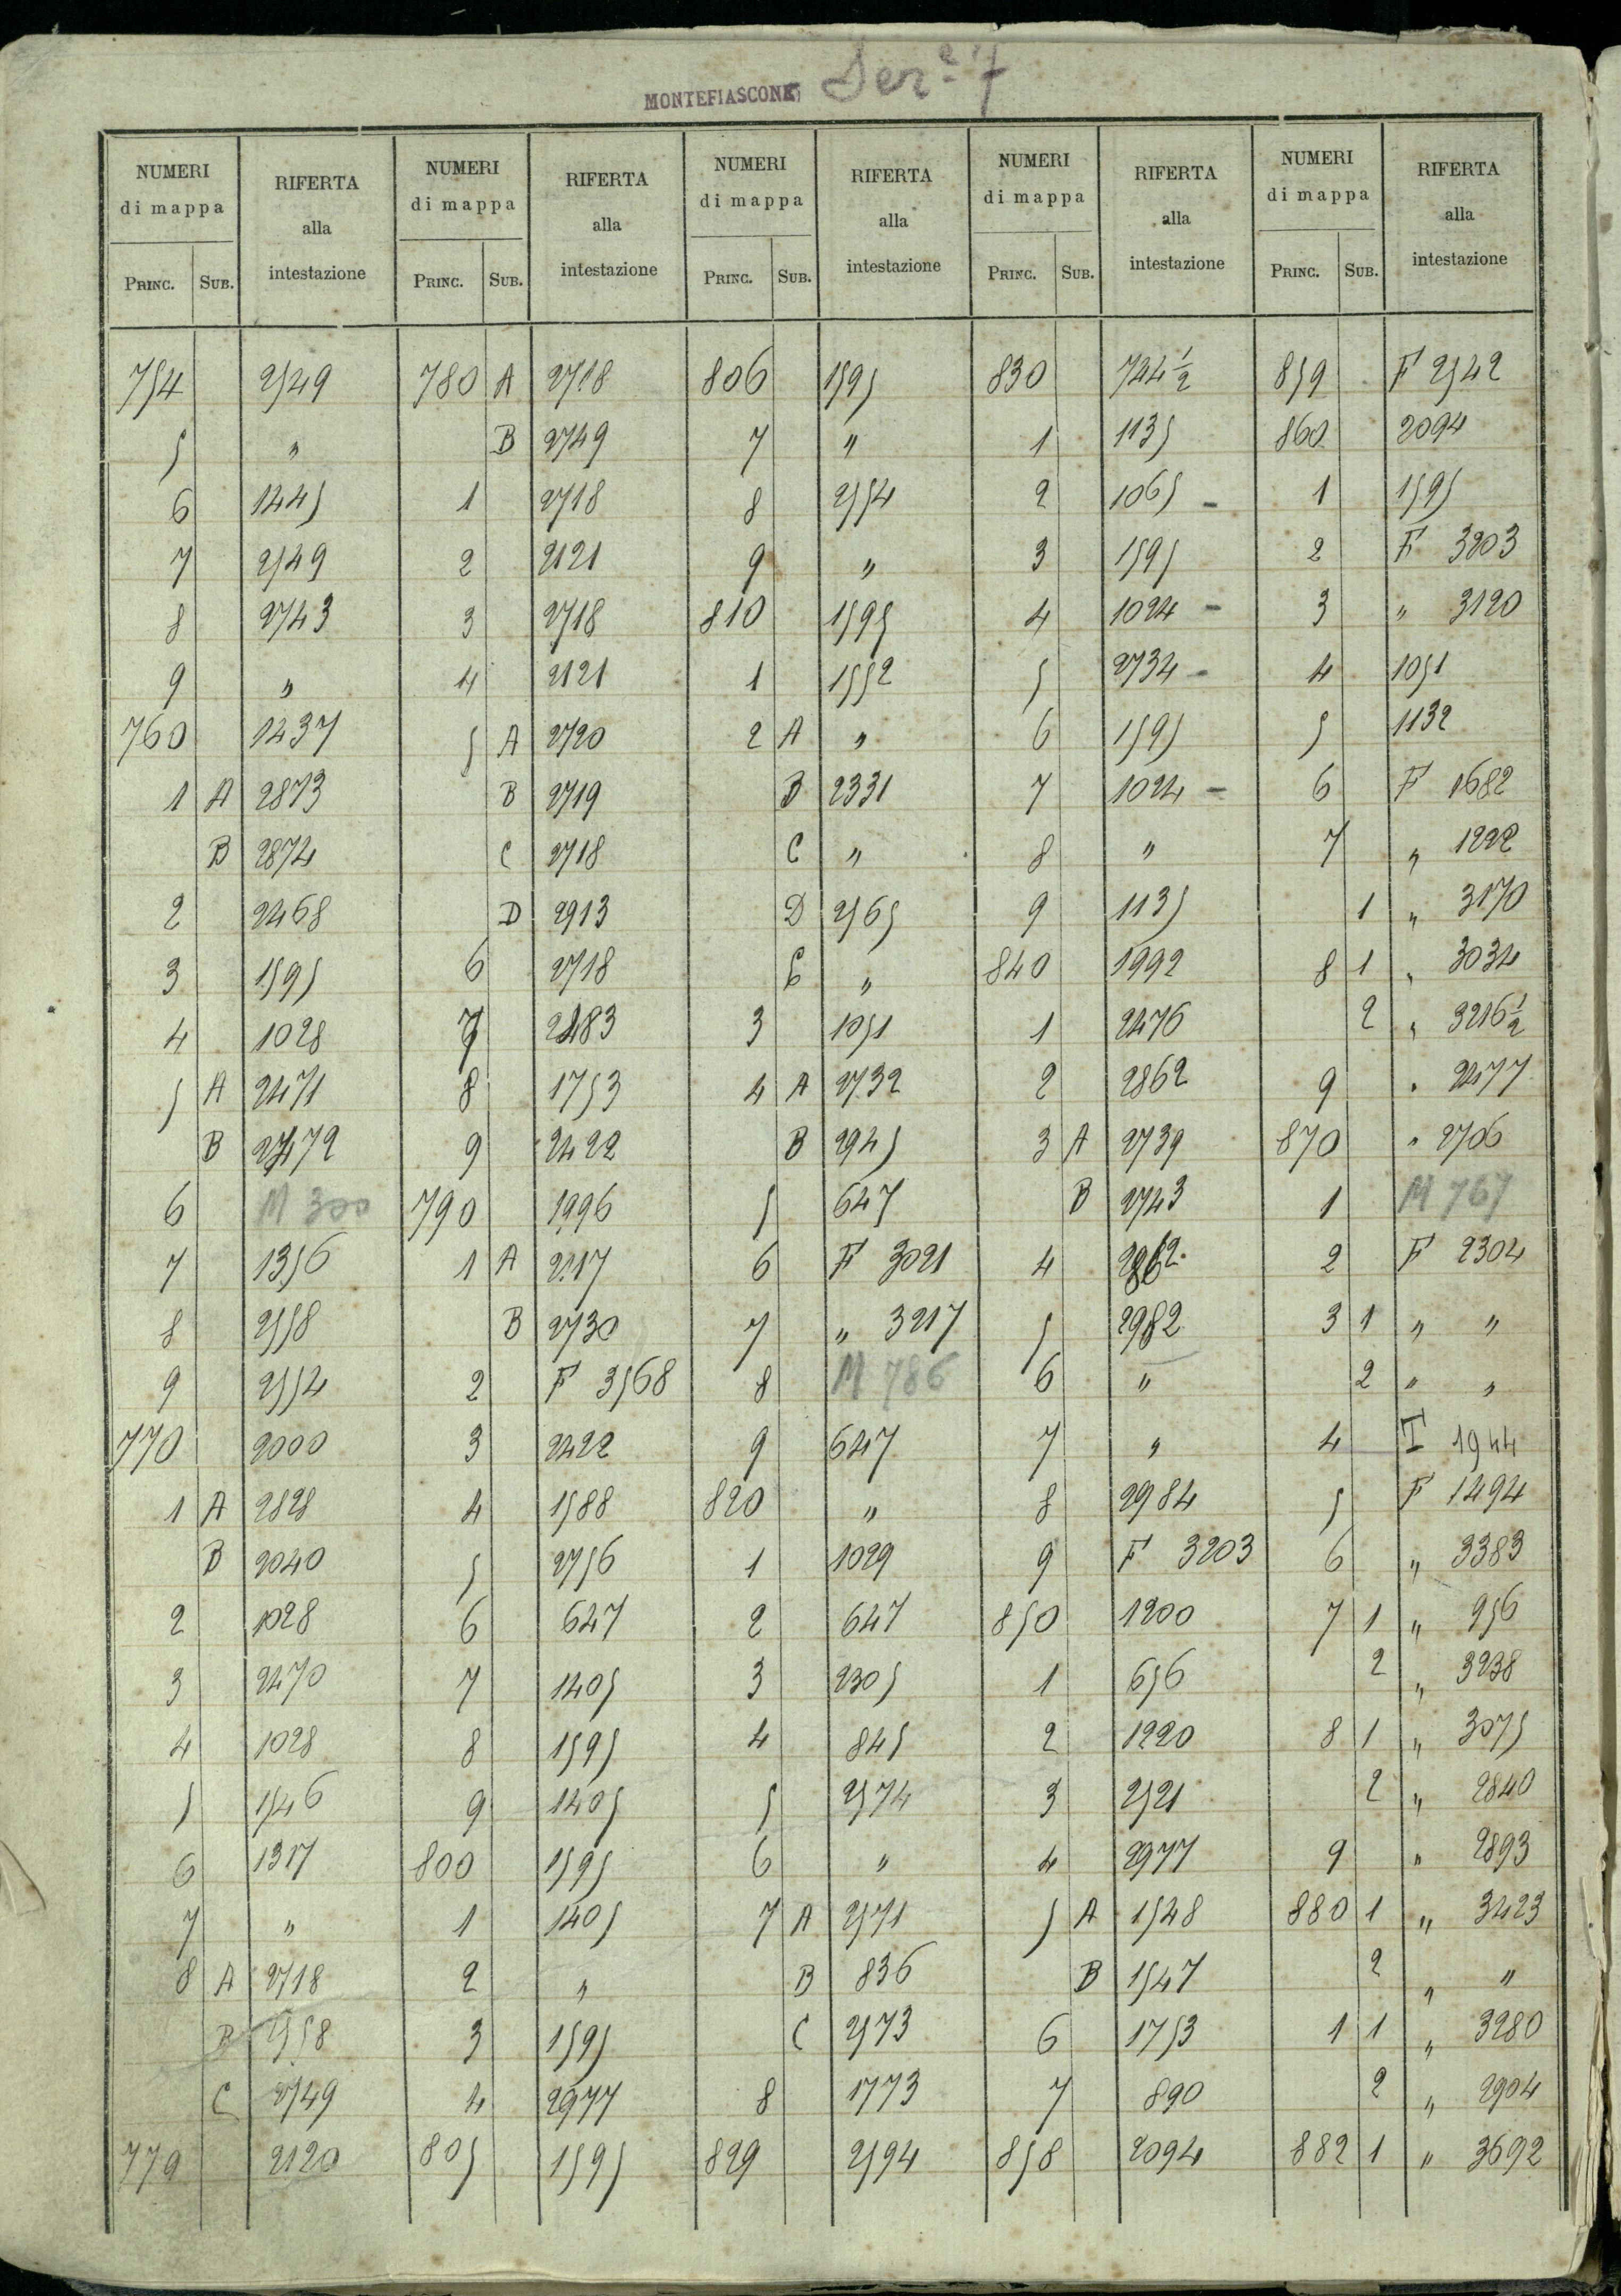 MONTEFIASCONE Ser.e 7
NUMERI di mappa RIFERTA alla intestazione NUMERI di mappa RIFERTA alla intestazione NUMERI di mappa RIFERTA alla intestazione NUMERI di mappa RIFERTA alla intestazione NUMERI di mappa RIFERTA alla intestazione
PRINC. SUB. PRINC. SUB. PRINC. SUB. PRINC. SUB. PRINC. SUB.
754 2549 780 A 2718 806 1595 830 744 1/2 859 F 2542
5 " B 2749 7 " 1 1135 860 2094
6 1445 1 2718 8 2554 2 1065 - 1 1595
7 2549 2 2121 9 " 3 1595 2 F 3203
8 2743 3 2718 810 1595 4 1024 - 3 " 3120
9 " 4 2121 1 1552 5 2734 - 4 1051
760 1237 5 A 2720 2 A " 6 1595 5 1132
1 A 2873 B 2719 B 2331 7 1024 - 6 F 1682
B 2874 C 2718 C " 8 " 7 " 1222
2 2468 D 2913 D 2565 9 1135 1 " 3170
3 1595 6 2718 E " 840 1992 8 1 " 3034
4 1028 7 2483 3 1051 1 2476 2 " 3216 1/2
5 A 2471 8 1753 4 A 2732 2 2862 9 " 2477
B 2472 9 2422 B 2945 3 A 2739 870 " 2706
6 M 300 790 1996 5 647 B 2743 1 M 767
7 1356 1 A 2117 6 F 3021 4 2862 2 F 2304
8 2558 B 2730 7 " 3217 5 2982 3 1 " "
9 2554 2 F 3568 8 M 786 6 " 2 " "
770 2000 3 2422 9 647 7 " 4 I 1944
1 A 2828 4 1588 820 " 8 2984 5 F 1494
B 2040 5 2756 1 1029 9 F 3203 6 " 3383
2 1028 6 647 2 647 850 1200 7 1 " 956
3 2470 7 1405 3 2305 1 656 2 " 3238
4 1028 8 1595 4 845 2 1220 8 1 " 3075
5 1546 9 1405 5 2574 3 2521 2 " 2840
6 1317 800 1595 6 " 4 2977 9 " 2893
7 " 1 1405 7 A 2571 5 A 1548 880 1 " 3423
8 A 2718 2 " B 836 B 1547 2 " "
B 2558 3 1595 C 2573 6 1753 1 1 " 3280
C 2749 4 2977 8 1773 7 890 2 " 2904
779 2120 805 1595 829 2594 858 2094 882 1 " 3692